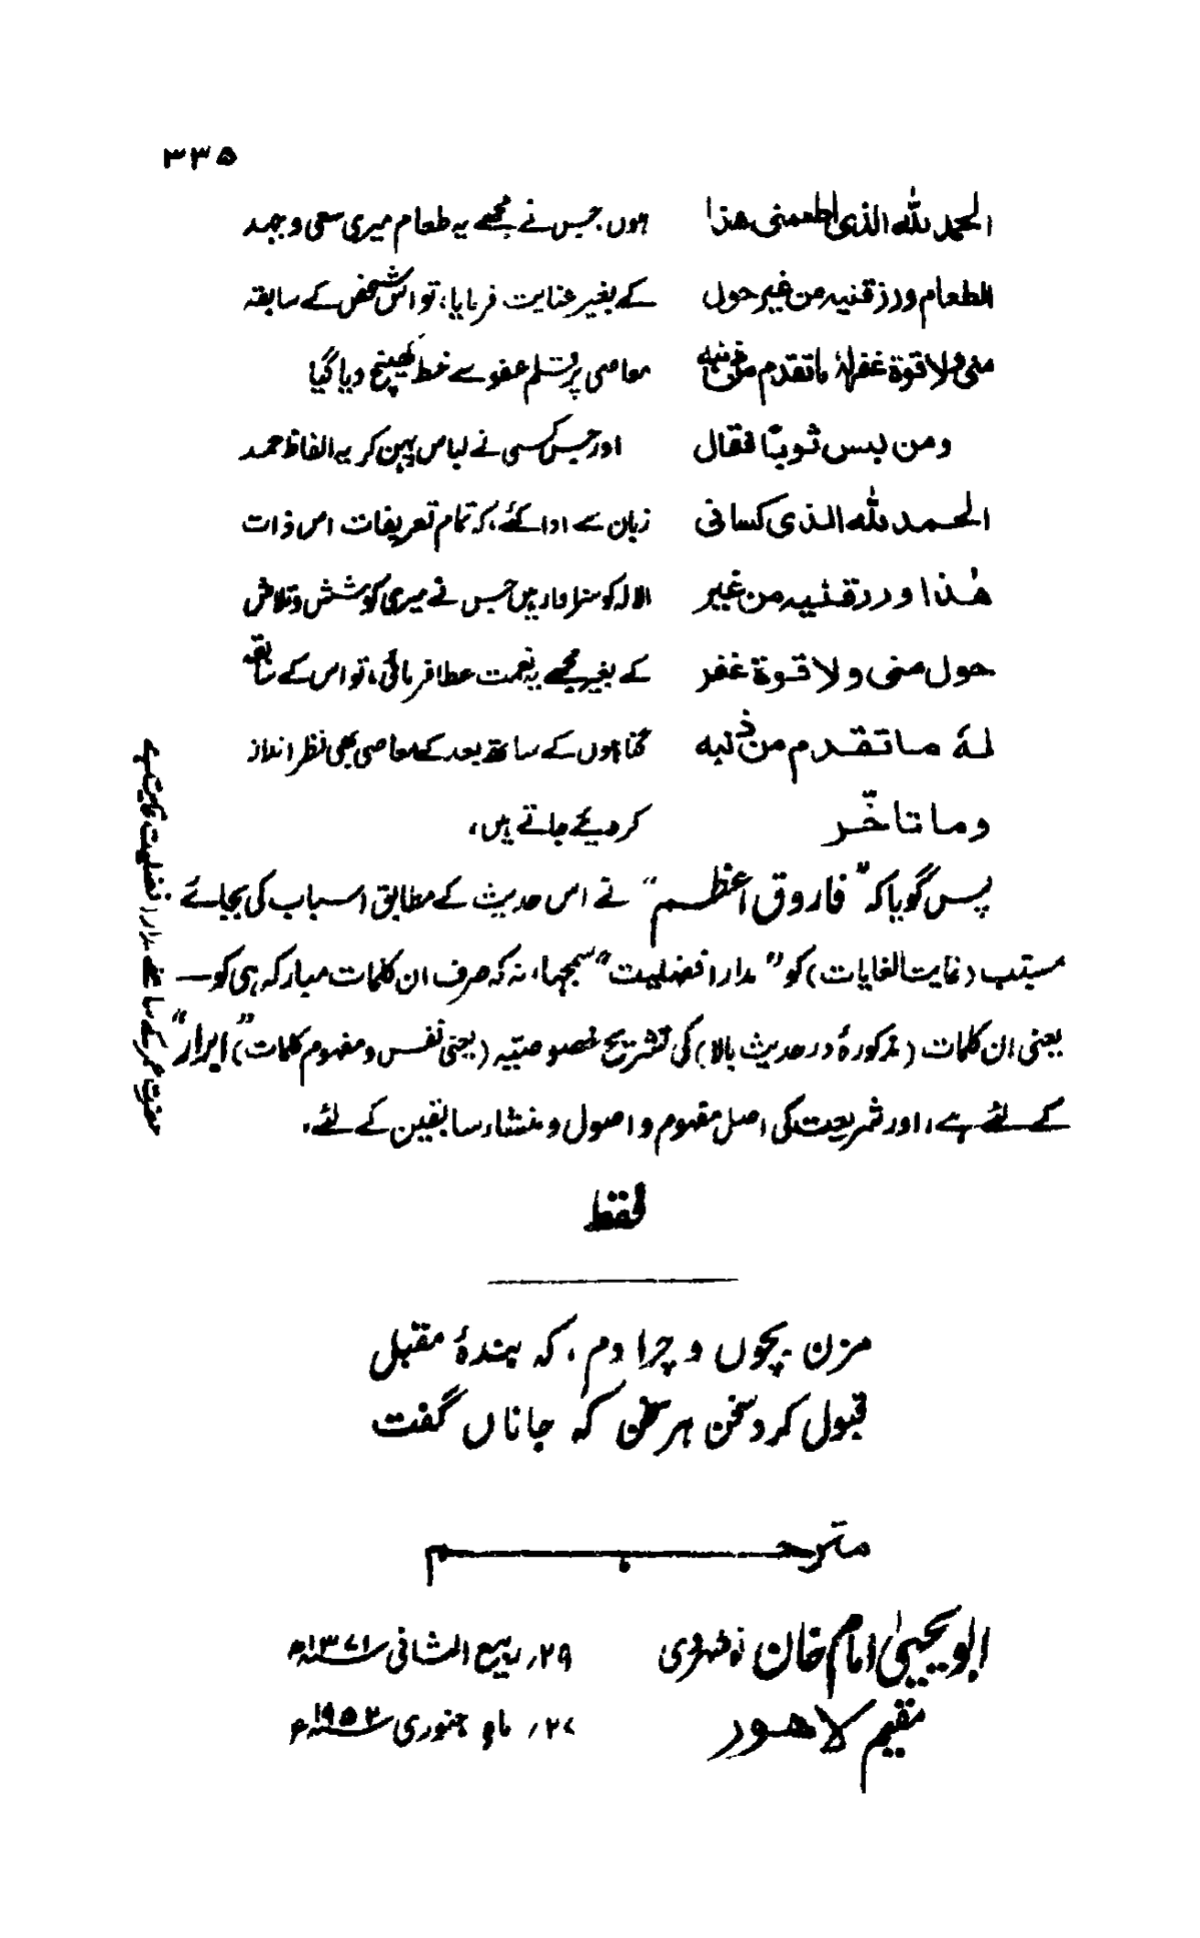 ۳۳۵
الحمد لله الذی اطعمنی هذا ہوں جس نے مجھے یہ طعام میری سعی و جہد
الطعام ورزقنیه من غیر حول کے بغیر عنایت فرمایا، تو اس شخص کے سابقہ
منی ولا قوة غفر لهٗ ما تقدم من ذنبه معاصی پر قلم عفو سے خط کھینچ دیا گیا
ومن لبس ثوبًا فقال اور جس کسی نے لباس پہن کر یہ الفاظ حمد
الحمد لله الذی کسانی زبان سے ادا کئے، کہ تمام تعریفات اس ذات
هٰذا ورزقنیه من غیر الالہ کو سزاوار ہیں جس نے میری کوشش و تلاش
حول منی ولا قوة غفر کے بغیر مجھے یہ نعمت عطا فرمائی، تو اس کے سابقہ
لهٗ ما تقدم من ذنبه گناہوں کے ساتھ بعد کے معاصی بھی نظر انداز
وما تاخّر کر دیئے جاتے ہیں،
پس گویا کہ "فاروق اعظم" نے اس حدیث کے مطابق اسباب کی بجائے
مسبّب (غایت الغایات) کو "مدار افضلیت" سمجھا، نہ کہ صرف ان کلمات مبارکہ ہی کو —
یعنی ان کلمات (مذکورۂ در حدیث بالا) کی تشریح خصوصیّہ (یعنی نفس و مفہوم کلمات) "ابرار"
کے لئے ہے، اور شریعت کی اصل مفہوم و اصول و منشاء سابقین کے لئے،
حضرت عمر کے سامنے مدار افضلیت
فقط
مزن بچوں و چرا دم، کہ بندۂ مقبل
قبول کرد سخن ہر سخن کہ جاناں گفت
مترجم
ابو یحییٰ امام خان نوشہروی ۲۹ ربیع الثانی ۱۳۷۱ھ
مقیم لاہور ۲۷ ماہ جنوری ۱۹۵۲ء